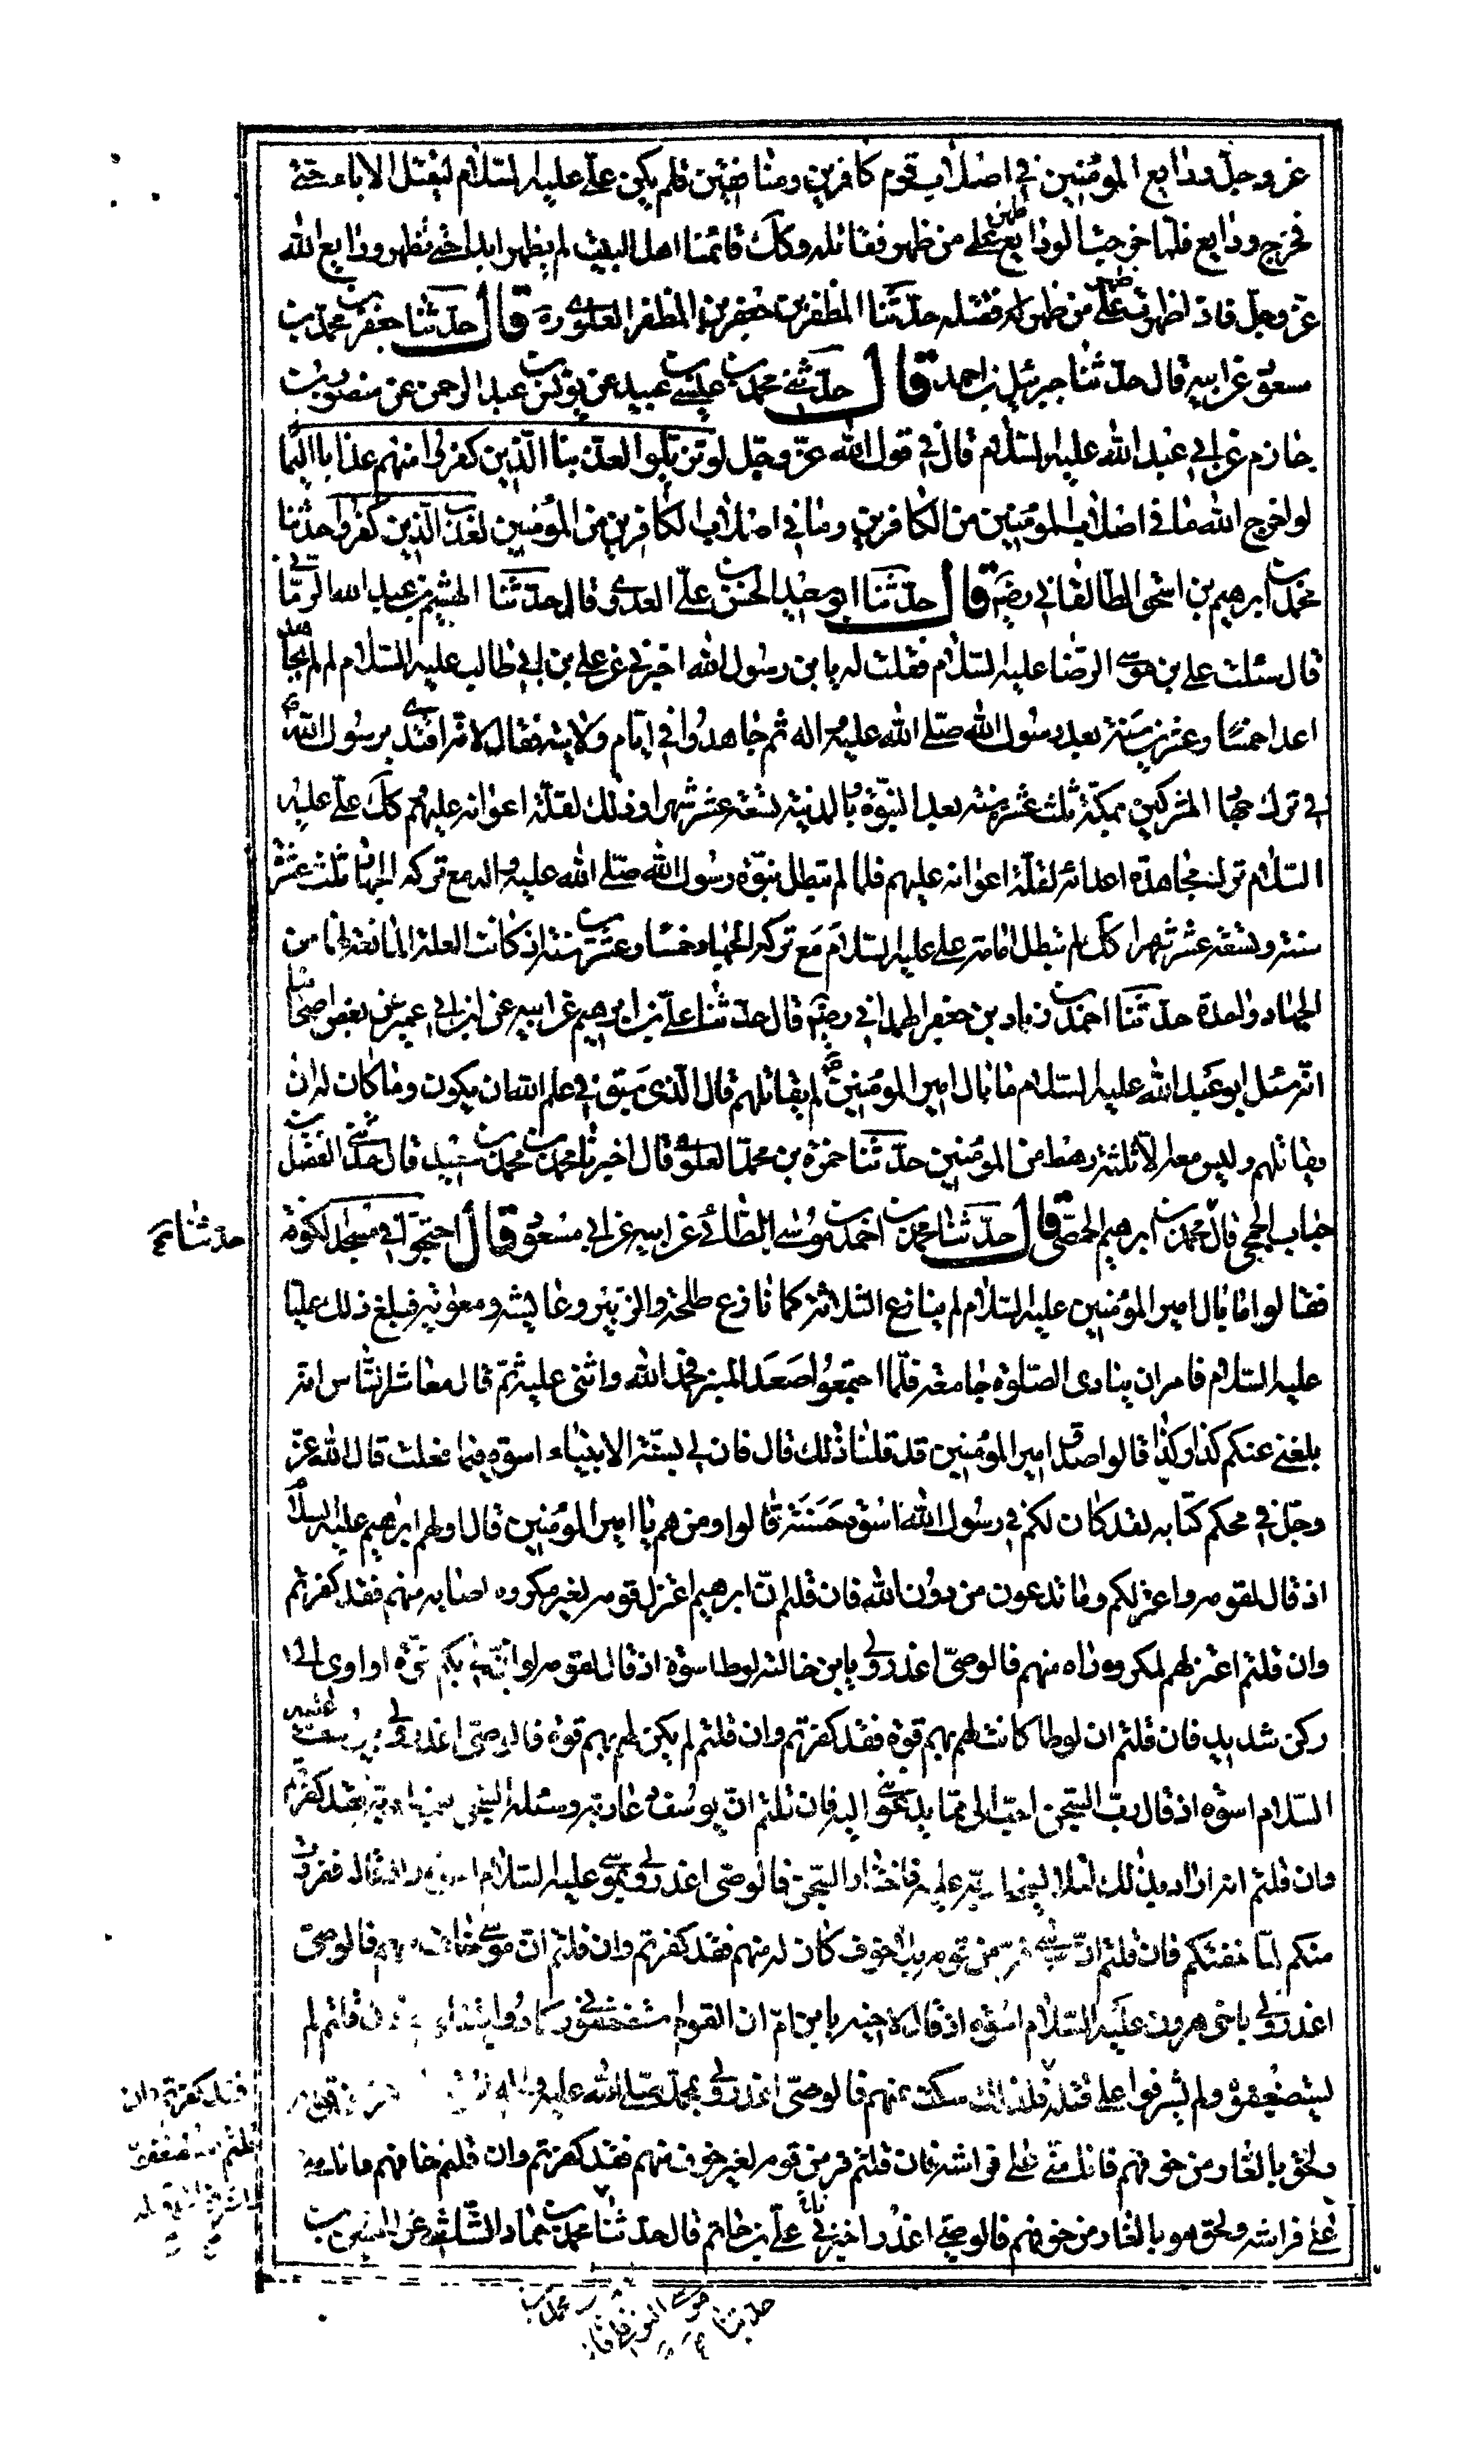 عز وجل ودايع المؤمنين في اصلاب قوم كافرين ومنافقين فلم يكن علي عليه السلام ليقتل الاباء حتى
تخرج ودايع فلما خرجت الودايع ظهر علي من ظهر فقاتله وكك قائمنا اهل البيت لم يظهر ابدا حتى تظهر ودايع الله
عز وجل فاذا ظهرت ظهر علي من ظهر له فقتله حدثنا المظفر بن جعفر بن المظفر العلوي ره قال حدثنا جعفر بن محمد بن
مسعود عن ابيه قال حدثنا جبرئيل بن احمد قال حدثني محمد بن عيسى بن عبيد عن يونس بن عبد الرحمن عن منصور بن
حازم عن ابي عبد الله عليه السلام قال في قول الله عز وجل لو تزيلوا لعذبنا الذين كفروا منهم عذابا اليما
لو اخرج الله ما في اصلاب المؤمنين من الكافرين وما في اصلاب الكافرين من المؤمنين لعذب الذين كفروا حدثنا
محمد بن ابرهيم بن اسحق الطالقاني رضه قال حدثنا ابو سعيد الحسن بن علي العدوي قال حدثنا الهيثم بن عبد الله الرماني
قال سئلت علي بن موسى الرضا عليه السلام فقلت له يا بن رسول الله اخبرني عن علي بن ابي طالب عليه السلام لم لم يجاهد
اعداءه خمسا وعشرين سنة بعد رسول الله صلى الله عليه واله ثم جاهد في ايام ولايته فقال لانه اقتدى برسول الله ص
في ترك جهاد المشركين بمكة ثلث عشرة سنة بعد النبوة وبالمدينة تسعة عشر شهرا وذلك لقلة اعوانه عليهم كك علي عليه
السلام ترك مجاهدة اعدائه لقلة اعوانه عليهم فلما لم تبطل نبوة رسول الله صلى الله عليه واله مع تركه الجهاد ثلث عشرة
سنة وتسعة عشر شهرا كك لم تبطل امامة علي عليه السلام مع تركه الجهاد خمسا وعشرين سنة اذ كانت العلة المانعة لهما من
الجهاد واحدة حدثنا احمد بن زياد بن جعفر الهمداني رضه قال حدثنا علي بن ابرهيم عن ابيه عن ابن ابي عمير عن بعض اصحابنا
انه سئل ابو عبد الله عليه السلام ما بال امير المؤمنين ع لم يقاتلهم قال الذي سبق في علم الله ان يكون وما كان له ان
يقاتلهم وليس معه الا ثلثة رهط من المؤمنين حدثنا حمزة بن محمد العلوي قال اخبرنا محمد بن محمد بن سعيد قال حدثني الفضل بن
حباب الجمحي قال محمد بن ابرهيم الحمصي قال حدثنا محمد بن احمد بن موسى الطائي عن ابيه عن ابي مسعود قال احتجوا في مسجد الكوفة
حدثنا
فقالوا ما بال امير المؤمنين عليه السلام لم ينازع الثلاثة كما نازع طلحة والزبير وعايشه ومعوية فبلغ ذلك عليا
عليه السلام فامر ان ينادى الصلوة جامعة فلما اجتمعوا صعد المنبر فحمد الله واثنى عليه ثم قال معاشر الناس انه
بلغني عنكم كذا وكذا قالوا صدق امير المؤمنين قد قلنا ذلك قال فان لي بسنة الانبياء اسوة فيما فعلت قال الله عز
وجل في محكم كتابه لقد كان لكم في رسول الله اسوة حسنة قالوا ومن هم يا امير المؤمنين قال اولهم ابرهيم عليه السلام
اذ قال لقومه واعتزلكم وما تدعون من دون الله فان قلتم ان ابرهيم اعتزل قومه لغير مكروه اصابه منهم فقد كفرتم
وان قلتم اعتزلهم لمكروه راه منهم فالوصي اعذر ولي بابن خالته لوط اسوة اذ قال لقومه لو ان لي بكم قوة او اوي الى
ركن شديد فان قلتم ان لوطا كانت لهم بهم قوة فقد كفرتم وان قلتم لم يكن لهم بهم قوة فالوصي اعذر ولي بيوسف عليه
السلام اسوة اذ قال رب السجن احب الي مما يدعونني اليه فان قلتم ان يوسف دعا ربه وسئله السجن فقد كفرتم
وان قلتم انه اراد بذلك لئلا يسخط ربه عليه فاختار السجن فالوصي اعذر ولي بموسى عليه السلام اسوة اذ قال ففررت
منكم لما خفتكم فان قلتم ان موسى فر من قومه بلا خوف كان له منهم فقد كفرتم وان قلتم ان موسى خاف منهم فالوصي
اعذر ولي باخي هرون عليه السلام اسوة اذ قال لاخيه يا بن ام ان القوم استضعفوني وكادوا يقتلونني فان قلتم لم
يستضعفوه ولم يشرفوا على قتله فلذلك سكت عنهم فالوصي اعذر ولي بمحمد صلى الله عليه واله
فقد كفرتم وان
قلتم استضعفوه
ولحق بالغار من خوفهم فانامني على فراشه فان قلتم فر من قومه لغير خوف منهم فقد كفرتم وان قلتم خافهم فانامني
على فراشه ولحق هو بالغار من خوفهم فالوصي اعذر اخبرني علي بن حاتم قال حدثنا محمد بن حماد الشاشي عن الحسين بن